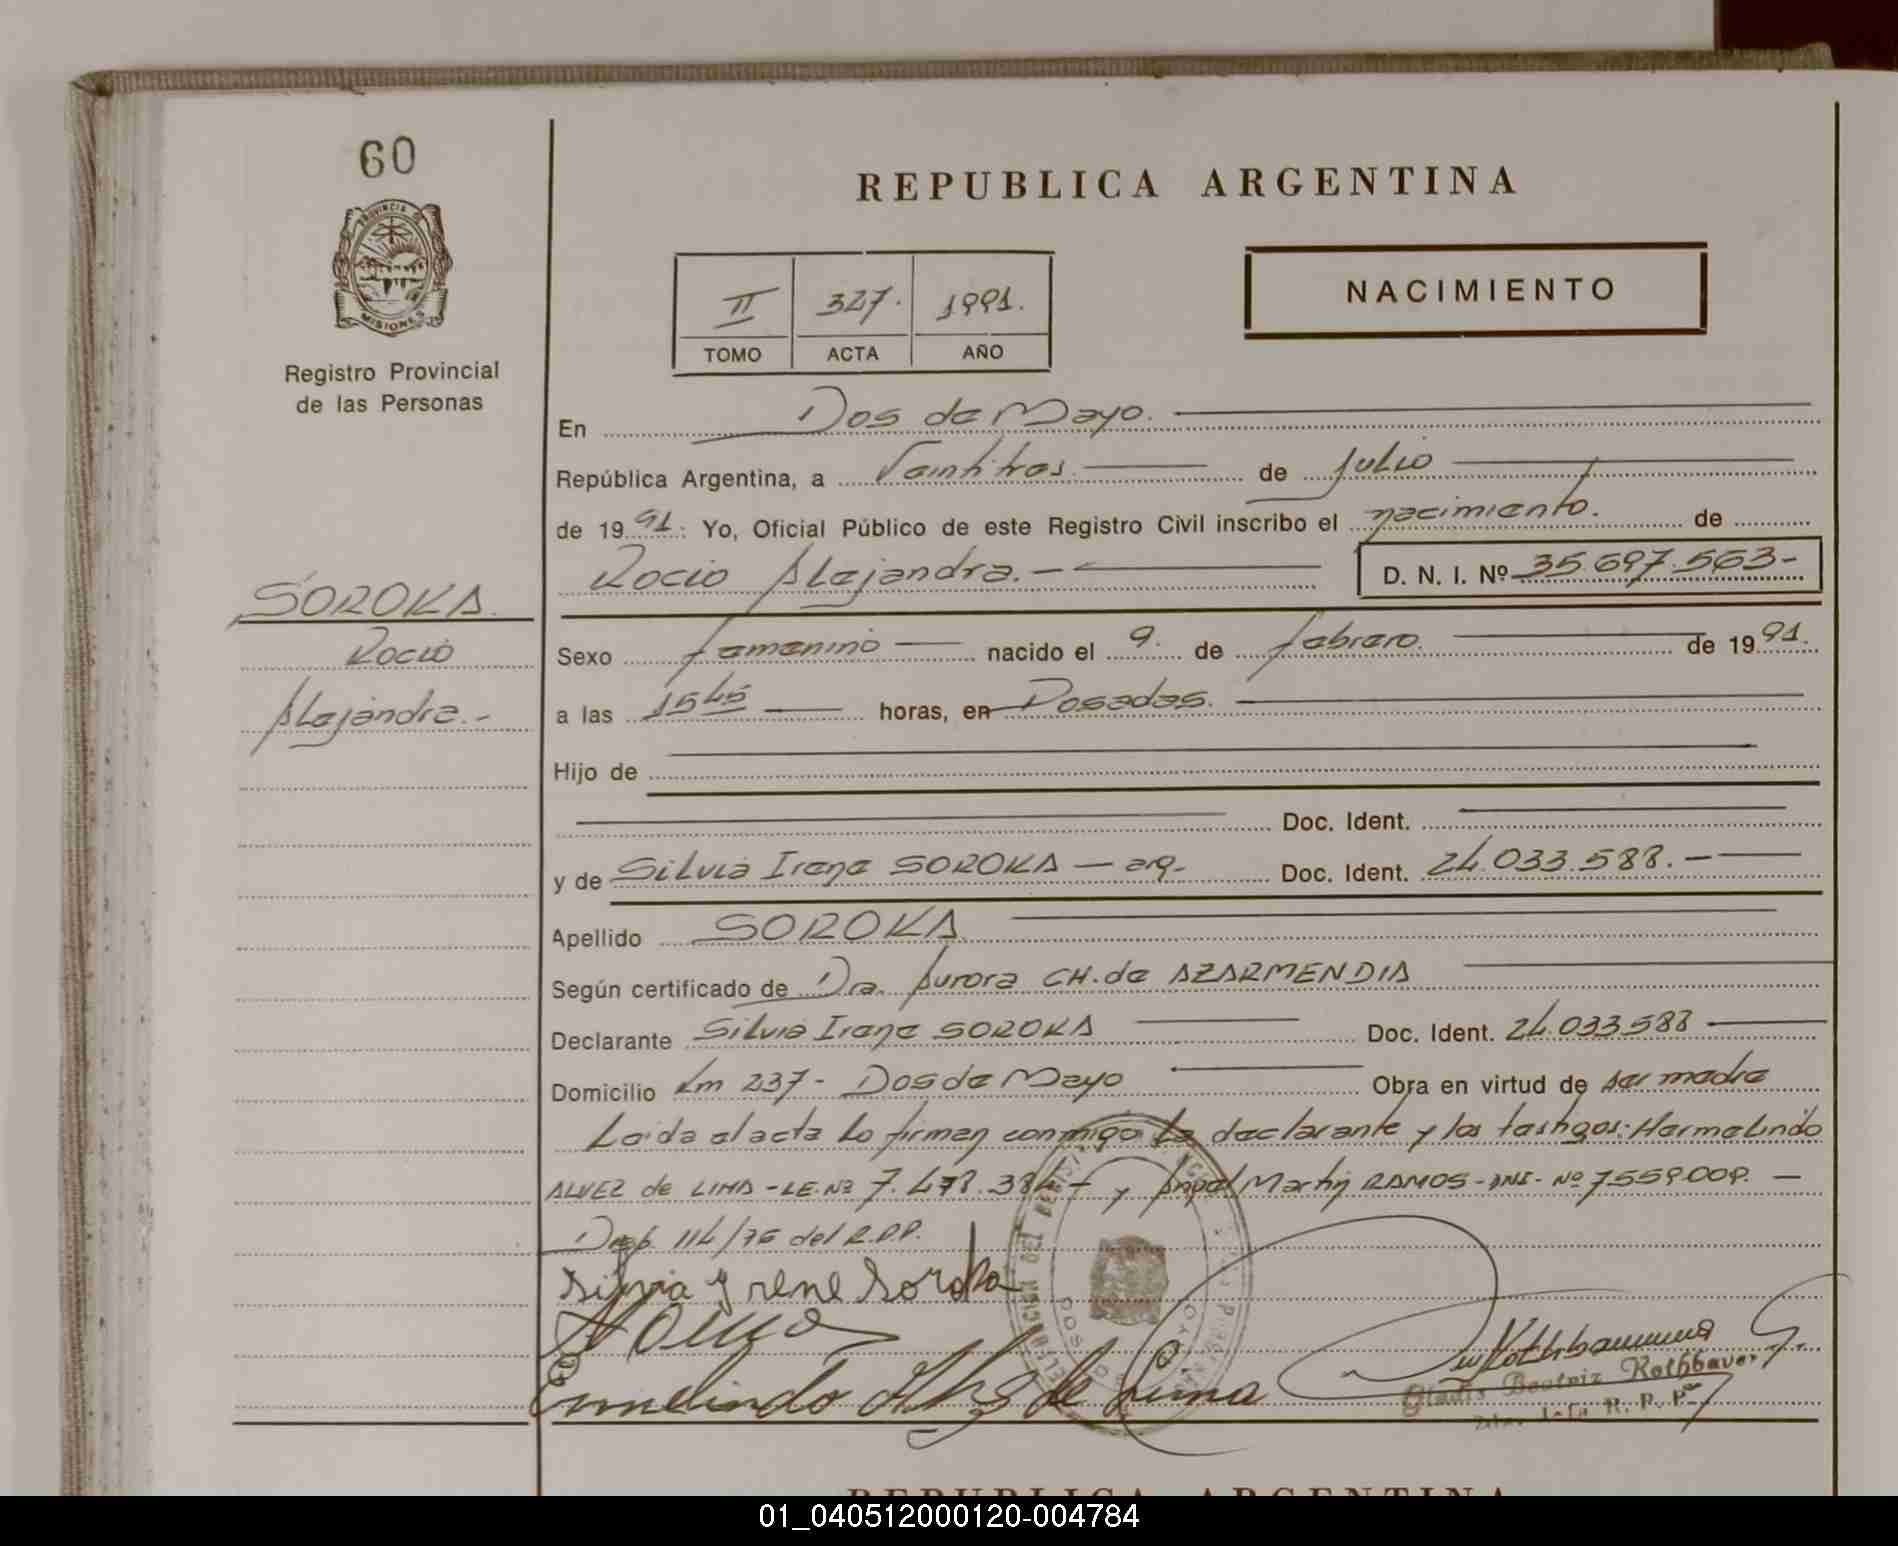 60
PROVINCIA DE
MISIONES
Registro Provincial
de las Personas
SOROKA
Rocio
Alejandra.-
REPUBLICA ARGENTINA
II 327. 1991.
TOMO ACTA AÑO
NACIMIENTO
En Dos de Mayo.
República Argentina, a Veintitres de julio
de 1991: Yo, Oficial Público de este Registro Civil inscribo el nacimiento. de
Rocio Alejandra.- D. N. I. Nº 35.697.563-
Sexo femenino nacido el 9. de febrero. de 1991.
a las 15 45 horas, en Posadas.
Hijo de
Doc. Ident.
y de Silvia Irene SOROKA - arg- Doc. Ident. 24.033.588.-
Apellido SOROKA
Según certificado de Dra. Aurora CH. de AZARMENDIA
Declarante Silvia Irene SOROKA Doc. Ident. 24.033.588
Domicilio Km 237- Dos de Mayo Obra en virtud de ser madre
Leida el acta lo firman conmigo la declarante y los testigos: Hermelindo
ALVEZ de LIMA - LE.Nº 7.478.384- y Angel Martin RAMOS - DNI- Nº 7559.009. -
Disp. 114/76 del R.P.P.
Silvia Yrene Soroka
de Lima
Gladis Beatriz Rothbauer
R. P. P.
REPUBLICA ARGENTINA
01_040512000120-004784